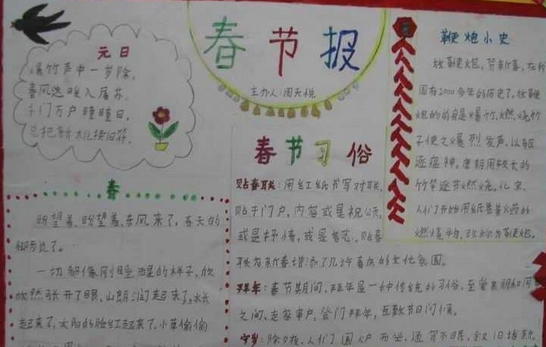 春节报
主办人:周天悦
元日
爆竹声中一岁除,
春风送暖入屠苏,
千门万户曈曈日,
总把新桃换旧符。
春
盼望着,盼望着,东风来了,春天的
脚步近了。
一切都像刚睡醒的样子,欣
欣然张开了眼,山朗润起来了,水长
起来了,太阳的脸红起来了,小草偷偷
春节习俗
贴春联:用红纸书写对联,
贴于门户,内容或是祝公历,
或是抒情,或是
联为新春增添了几许喜庆的文化氛围。
拜年:春节期间,拜年是一种传统的习俗,至爱亲朋和同
之间,走家串户,登门拜年,互致节日问候。
守岁:除夕夜,人们围炉而坐,通宵不眠,叙旧话新,
鞭炮小史
放鞭炮,贺新春,在我
国有2000多年的历史了,放鞭
炮的前身是爆竹,燃烧竹
子使之爆烈发声,以驱
逐瘟神,唐朝用较长的
竹竿逐节燃烧,北宋
人们开始用纸卷着火药的
燃烧物,改称为鞭炮。